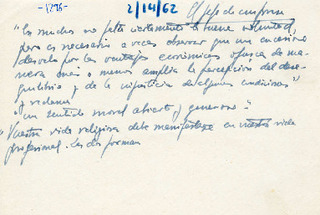 -1276-
2/14/62
El jefe de empresa
"En muchos no falta ciertamente la buena voluntad,
pero es necesario a veces observar que una excesiva
desvelo por las ventajas económicas ofusca de ma-
nera más o menos amplia la percepción del dese-
quilibrio y de la injusticia de algunas condiciones"
y reclama
"un sentido moral abierto y generoso."
"Vuestra vida religiosa debe manifestarse en vuestra vida
profesional. Les dos forman